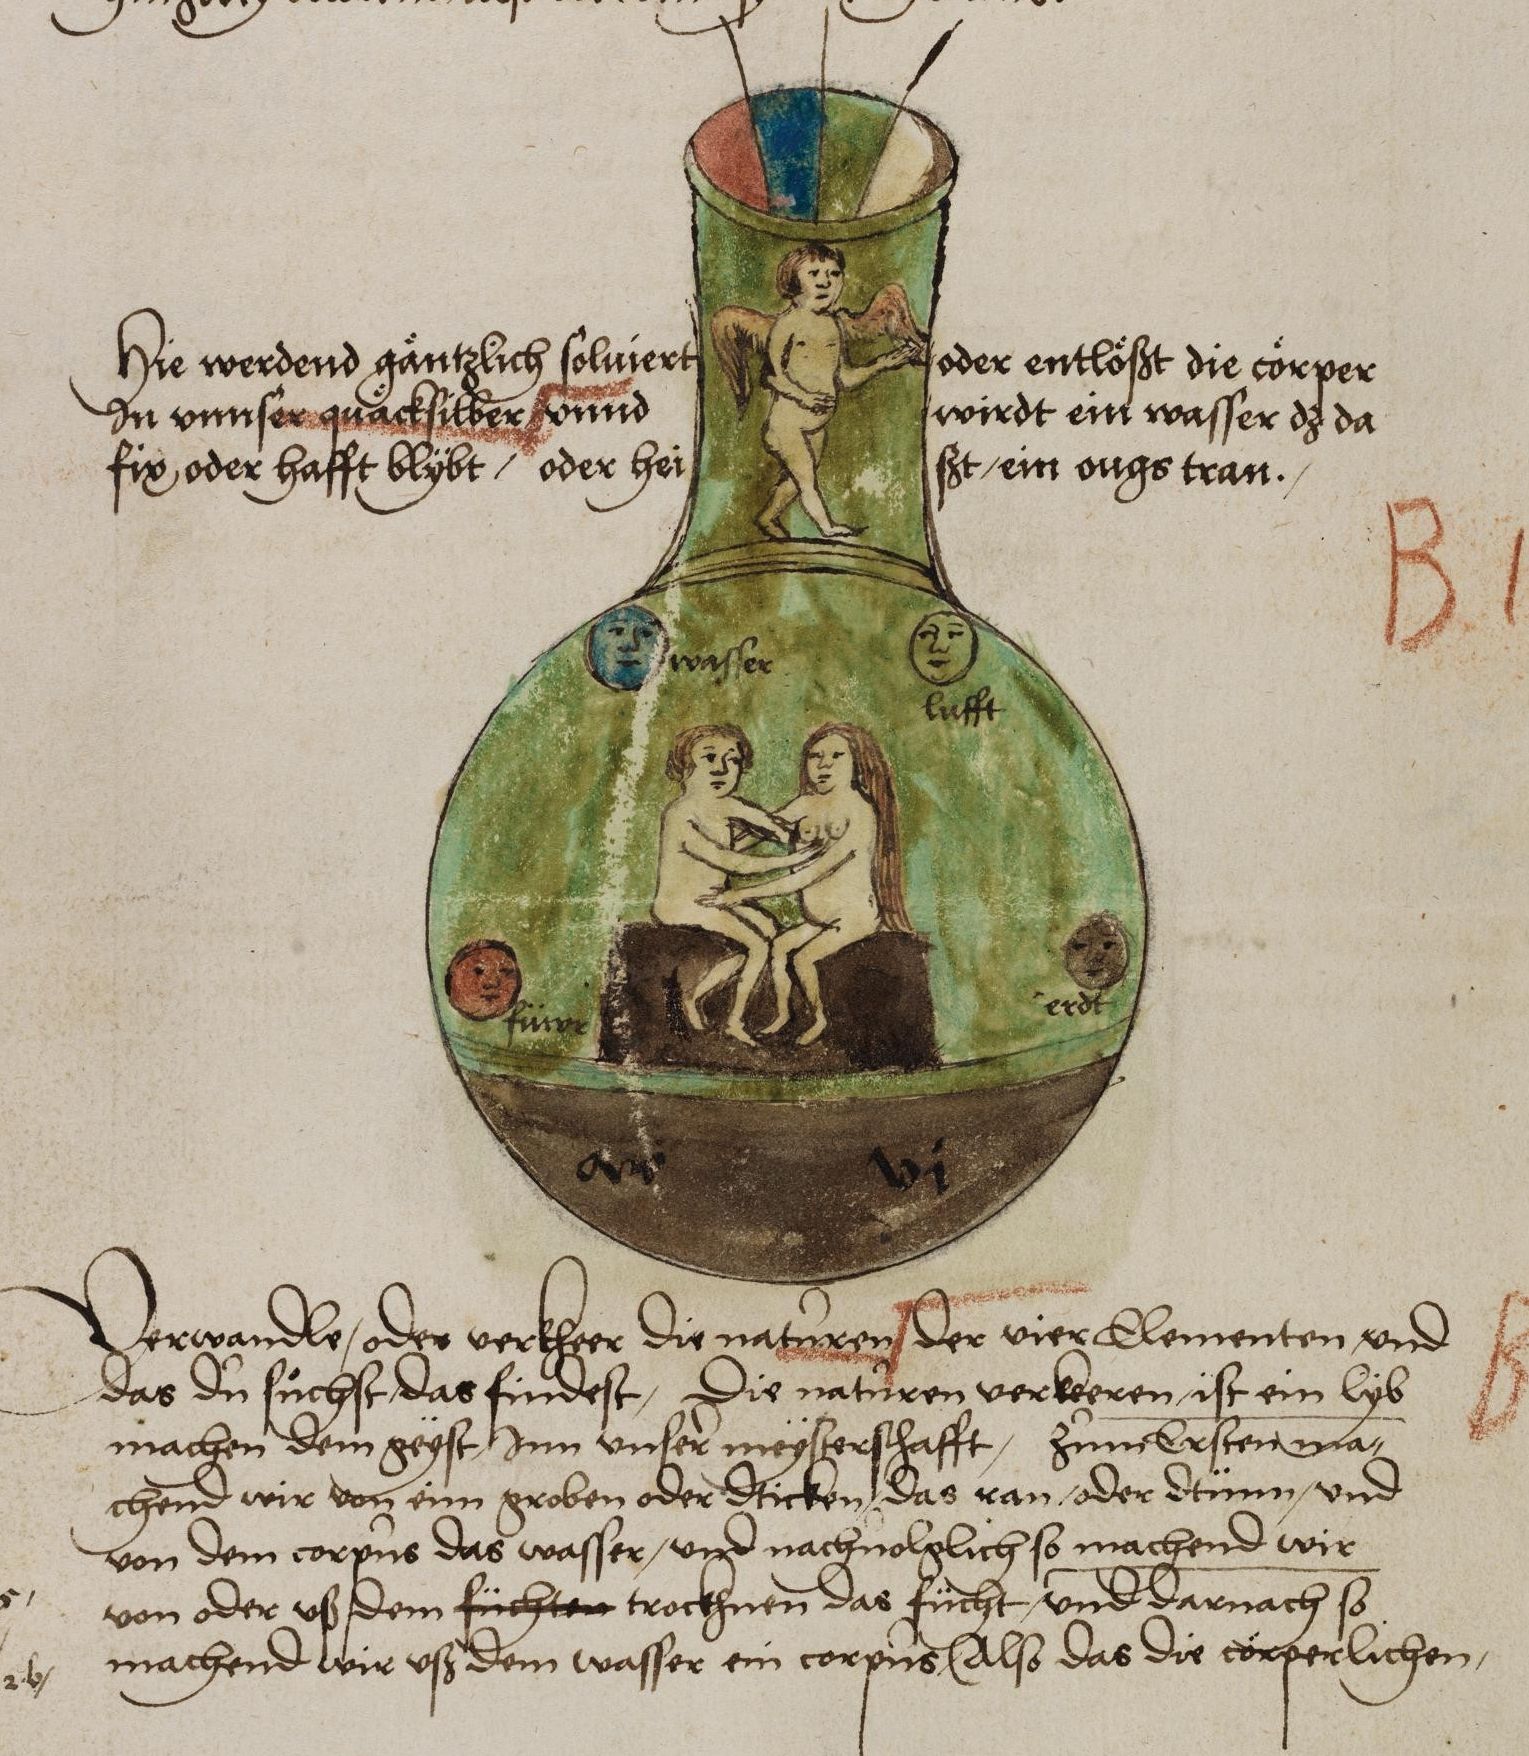 Hie werdend gäntzlich solviert oder entlößt die cörper
In vnnser quäcksilber / vnnd wirdt ein wasser dz da
fix oder hafft blÿbt / oder hei ßt / ein ougs tran. /
B 1
wasser
lufft
füwr
erdt
vi
Verwandle / oder verkheer die naturen / der vier Elementen vnd
B
das du suͦchst / das findest / Die naturen verkeeren / ist ein lÿb
machen dem geÿst / Inn vnser meÿsterschafft / Zum Ersten ma-
chend wir von einn groben oder dicken / das ran / oder dünn / vnd
von dem corpus das wasser / vnd nachuolglich so machend wir
von oder vß dem füchten trockhnen das fücht / vnd darnach so
machend wir vß dem wasser ein corpus / Also das die cörperlichen /